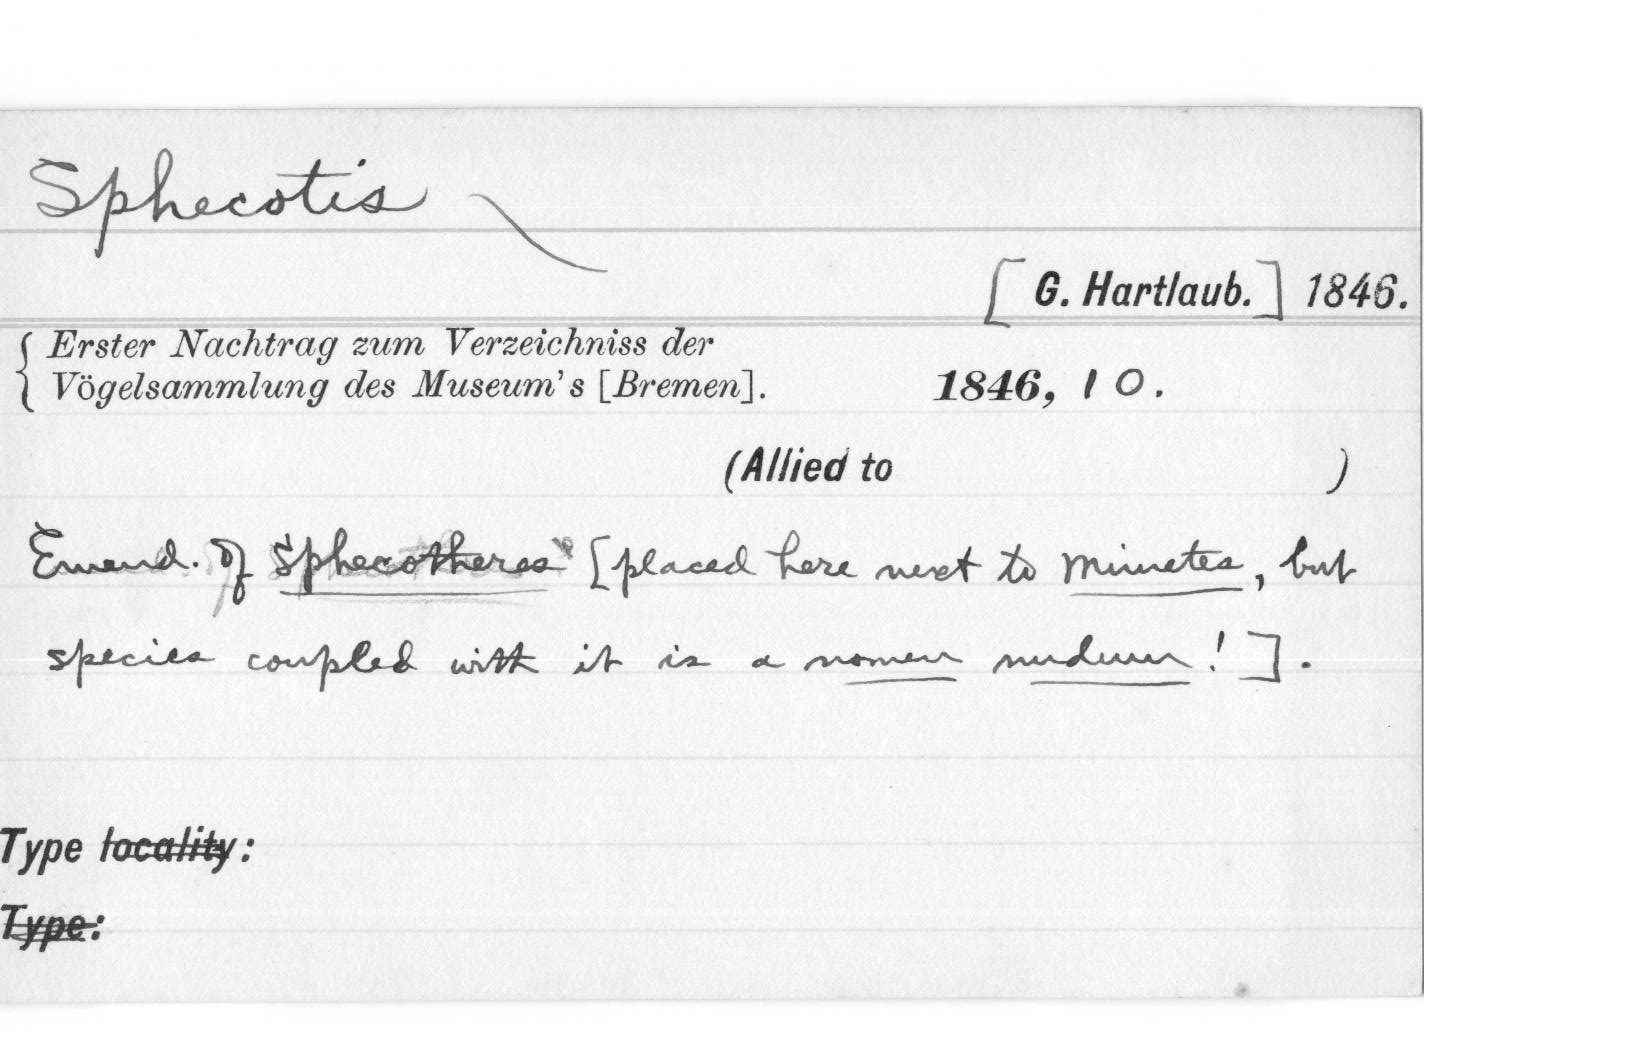 Sphecotis
[G. Hartlaub.] 1846.
Erster Nachtrag zum Verzeichniss der
Vögelsammlung des Museum's [Bremen]. 1846, 10.
(Allied to )
Emend. of Sphecotheres [placed here next to Mimetes, but
species coupled with it is a nomen nudum!].
Type locality:
Type: